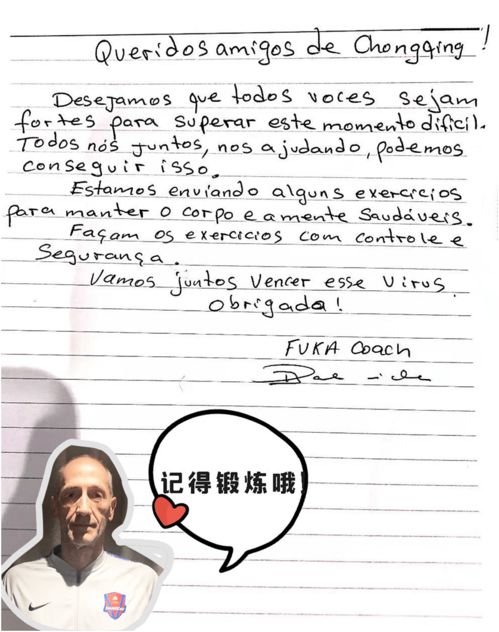 Queridos amigos de Chongqing!
Desejamos que todos voces sejam
fortes para superar este momento dificil.
Todos nós juntos, nos ajudando, podemos
conseguir isso.
Estamos enviando alguns exercicios
para manter o corpo e a mente saudáveis.
Façam os exercicios com controle e
Segurança.
Vamos juntos vencer esse virus.
Obrigada!
FUKA Coach
记得锻炼哦!